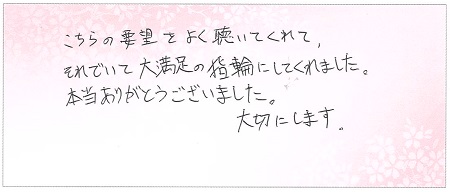 こちらの要望をよく聴いてくれて、
それでいて大満足の指輪にしてくれました。
本当ありがとうございました。
大切にします。